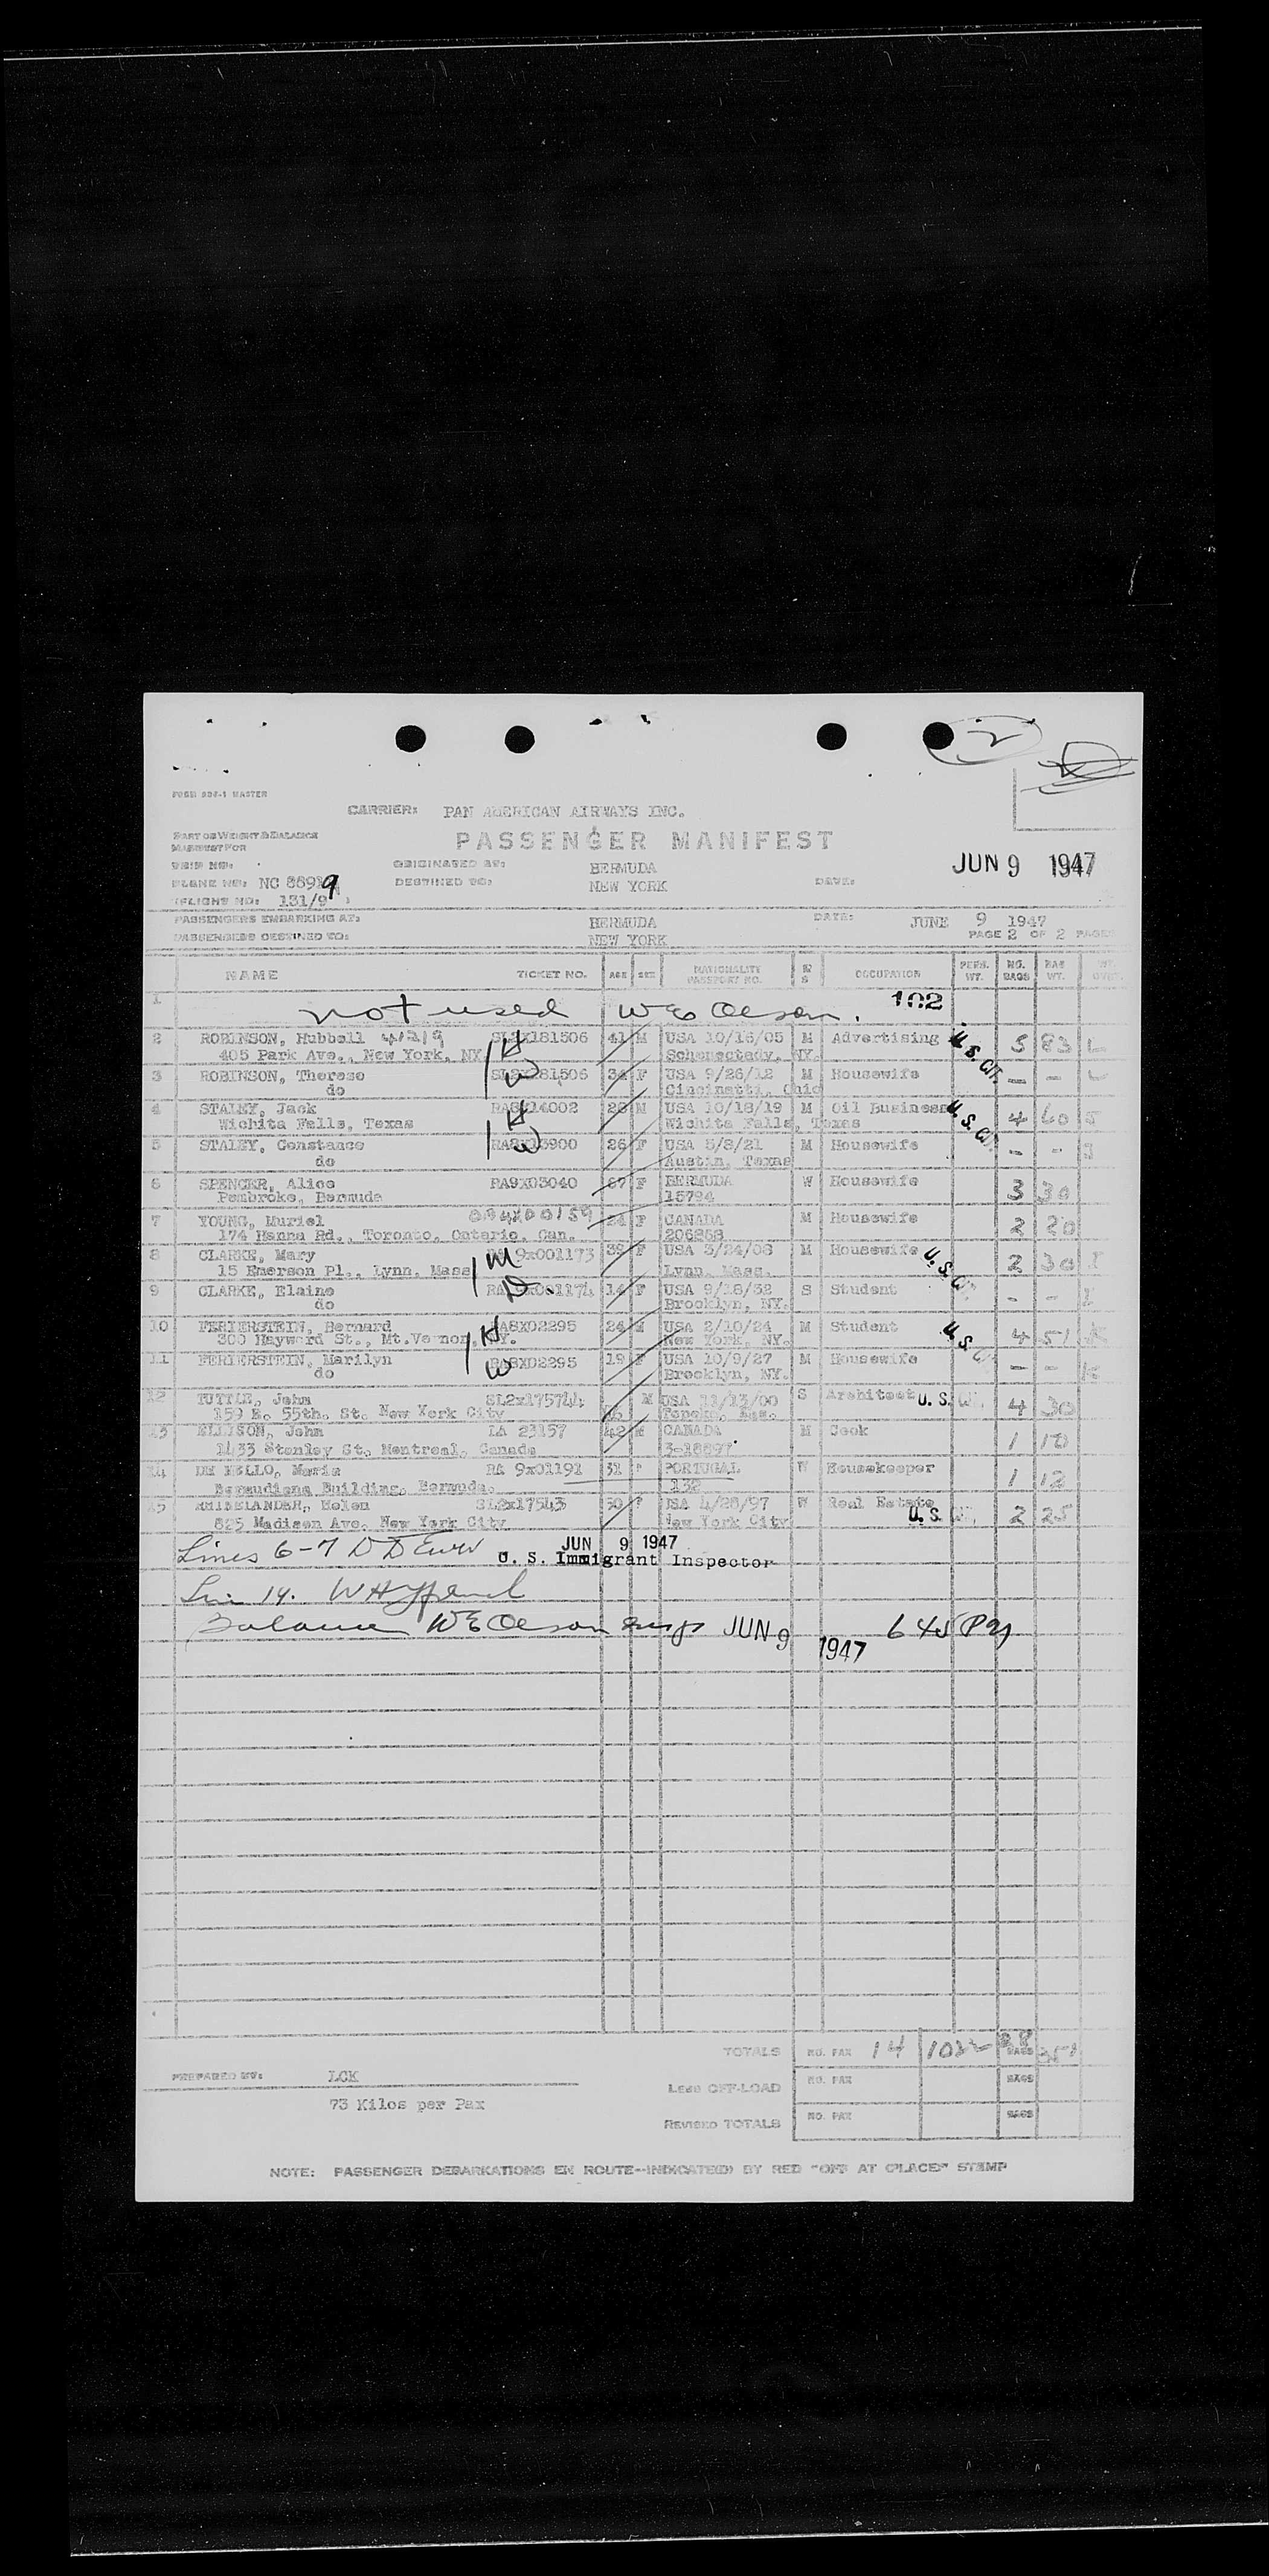 2
FORM 934-1 MASTER
CARRIER: PAN AMERICAN AIRWAYS INC.
PART OF WEIGHT & BALANCE
MANIFEST FOR
PASSENGER MANIFEST
TRIP NO:
ORIGINATED AT: BERMUDA
JUN 9 1947
PLANE NO: NC 8891 9
DESTINED TO: NEW YORK DATE:
FLIGHT NO: 131/9
PASSENGERS EMBARKING AT: BERMUDA DATE: JUNE 9 1947
PASSENGERS DESTINED TO: NEW YORK PAGE 2 OF 2 PAGES
NAME TICKET NO. AGE SEX NATIONALITY PASSPORT NO. M S OCCUPATION PERS. WT. NO. BAGS BAG WT. WT. OVER
1 not used W E Olson. 102
2 ROBINSON, Hubbell SL2X181506 41 M USA 10/16/05 M Advertising U.S. CIT. 5 83
405 Park Ave., New York, NY H Schenectady, NY.
3 ROBINSON, Therese 181506 34 F USA 9/26/12 M Housewife - -
do W Cincinatti, Ohio
4 STALEY, Jack 14002 M USA 10/18/19 M Oil Business U.S. CIT. 4 60
Wichita Falls, Texas H Wichita Falls, Texas
5 STALEY, Constance 15900 26 F USA 5/8/21 M Housewife - -
do W Austin, Texas
6 SPENCER, Alice RA9X03040 67 F BERMUDA W Housewife 3 30
Pembroke, Bermuda 15794
7 YOUNG, Muriel 24 F CANADA M Housewife 2 20
174 Hanna Rd., Toronto, Ontario, Can. 206868
8 CLARKE, Mary 9x001173 39 F USA 3/24/08 M Housewife U.S. 2 30
15 Emerson Pl., Lynn, Mass M Lynn, Mass.
9 CLARKE, Elaine 14 F USA 9/18/32 S Student - -
do D Brooklyn, NY.
10 FERIERSTEIN, Bernard RA8X02295 24 M USA 2/10/24 M Student U.S. 4 51
300 Hayward St., Mt.Vernon, NY. H New York, NY.
11 FERIERSTEIN, Marilyn RA8X02295 19 F USA 10/9/27 M Housewife - -
do W Brooklyn, NY.
12 TUTTLE, John SL2x175744 M USA 11/13/00 S Architect U.S. 4 30
159 E. 55th. St. New York City Topeka, Kas.
13 ELLISON, John LA 23157 42 M CANADA M Cook 1 10
1433 Stanley St., Montreal, Canada 3-18897
14 DE MELLO, Maria RA 9x01191 51 PORTUGAL W Housekeeper 1 12
Bermudiana Building, Bermuda. 132
15 Helen SL2x17543 50 USA 4/28/97 W Real Estate U.S. 2 25
825 Madison Ave. New York City New York City
Lines 6-7 JUN 9 1947
U. S. Immigrant Inspector
14.
Balance W E Olson JUN 9 1947
TOTALS NO. PAX 14 1022 28 BAGS 351
PREPARED BY: LCK LESS OFF-LOAD NO. PAX BAGS
73 Kilos per Pax
REVISED TOTALS NO. PAX BAGS
NOTE: PASSENGER DEBARKATIONS EN ROUTE--INDICATED BY RED "OFF AT (PLACE)" STAMP